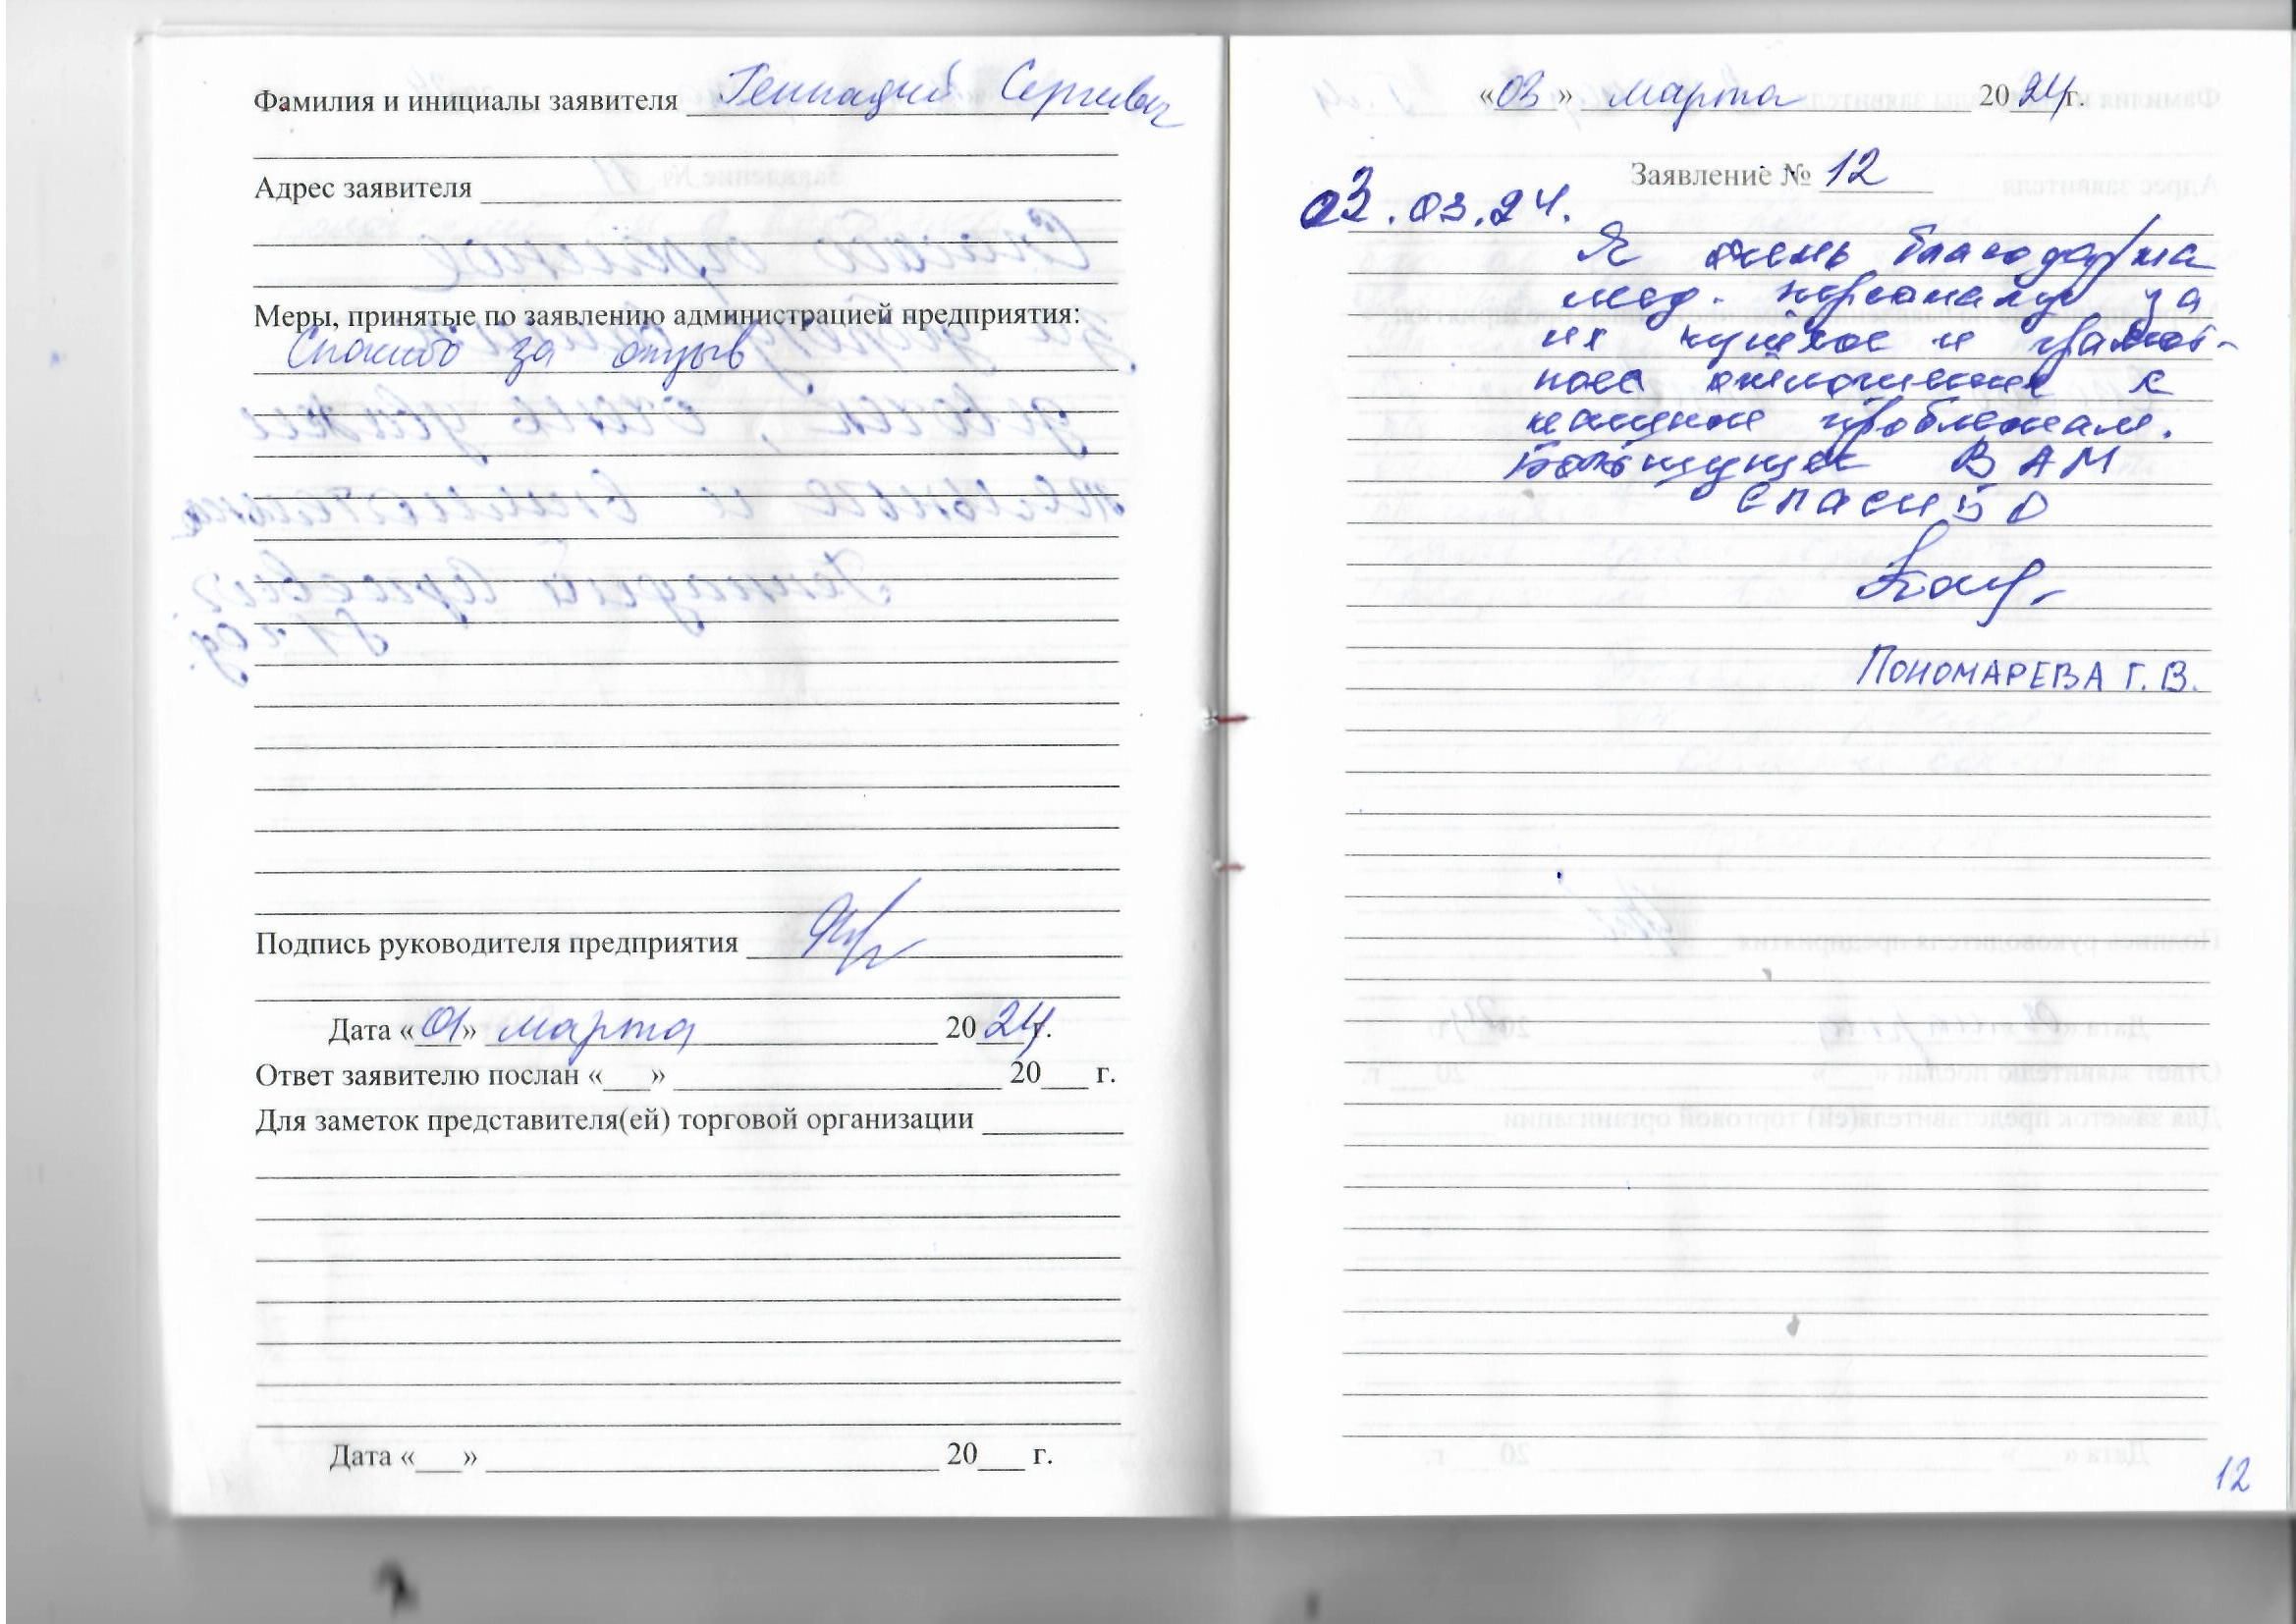 Фамилия и инициалы заявителя Геннадий Сергиевич
Адрес заявителя
Меры, принятые по заявлению администрацией предприятия:
Спасибо за отзыв
Подпись руководителя предприятия
Дата «01» марта 2024г.
Ответ заявителю послан «___» 20___ г.
Для заметок представителя(ей) торговой организации
Дата «___» 20___ г.
«03» марта 2024г.
Заявление № 12
03.03.24.
Я очень благодарна
мед. персоналу за
их чуткое и
ное отношение к
нашим проблемам.
Большущее ВАМ
СПАСИБО
ПОНОМАРЕВА Г. В.
12